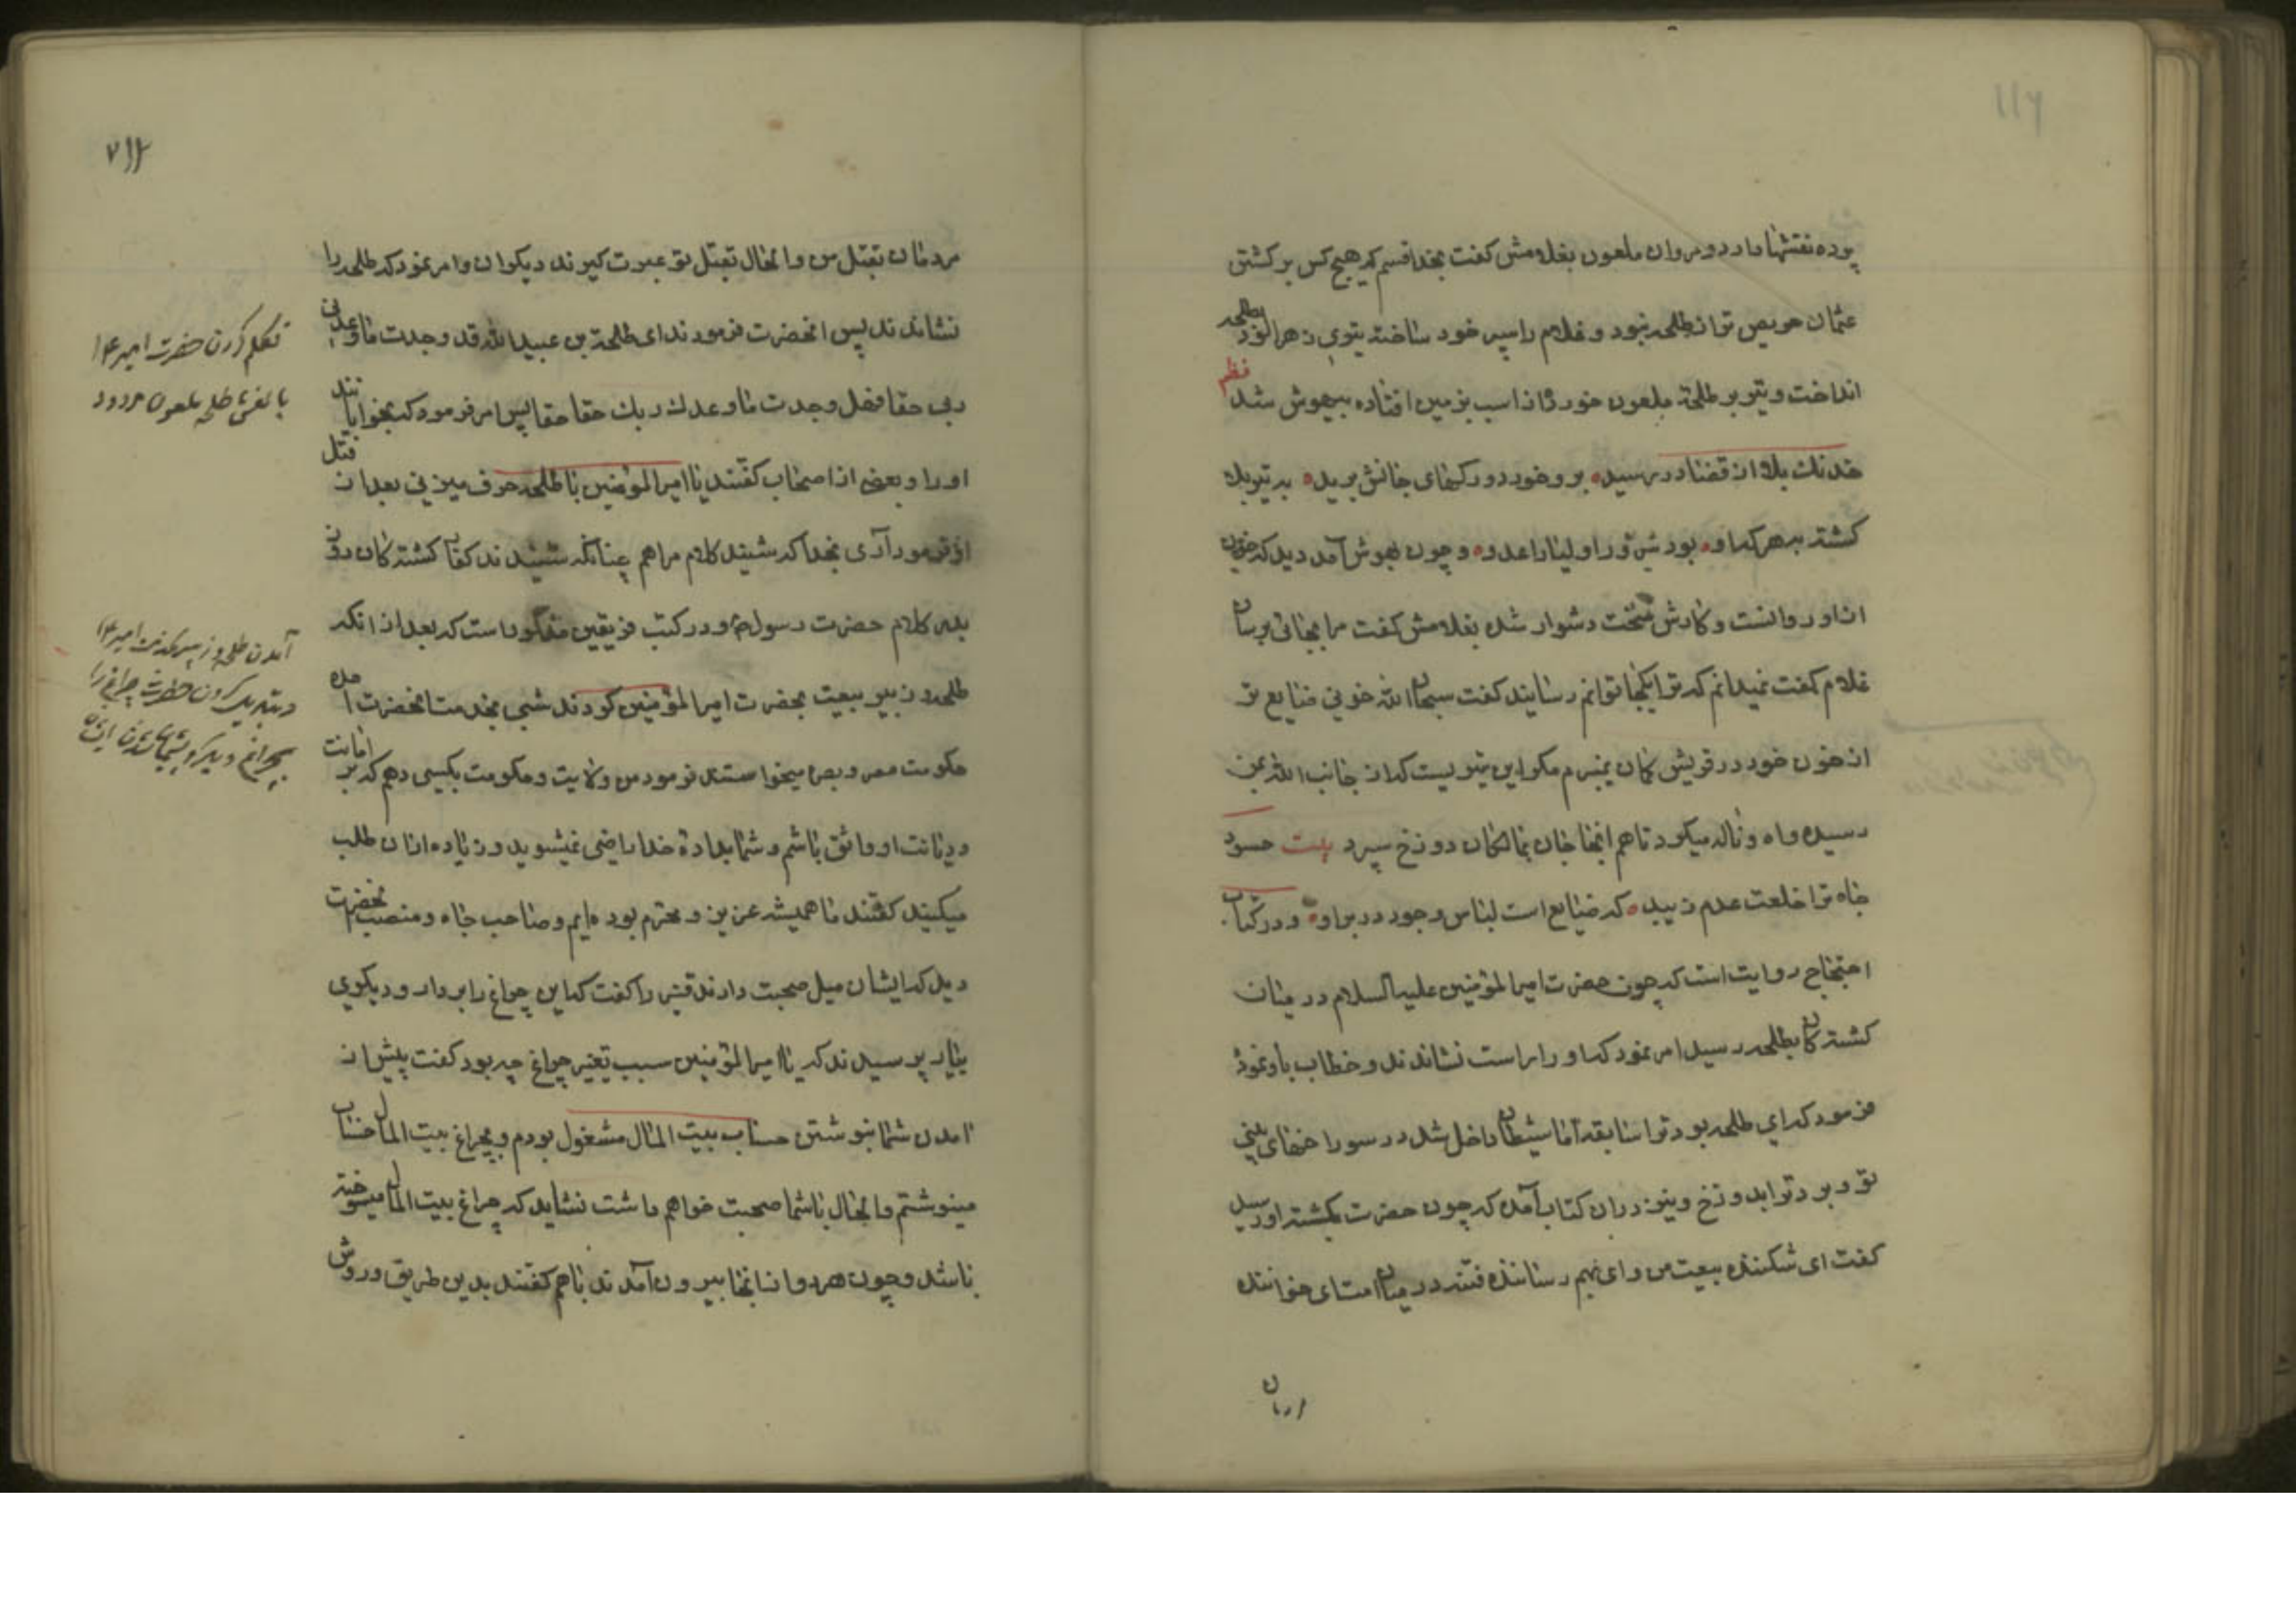 ۱۱۶
پرده نقشها دارد و مروان ملعون بغلامش کفت بخدا قسم که هیچ کس بر کشتن
عثمان حریص تر از طلحه نبود و غلام را سپر خود ساخته تیری زهرالود بطلحه
انداخت و تیر بر طلحهٔ ملعون خورد تا از اسب بزمین افتاده بیهوش شد نظم
خدنك بلا از قضا در رسید ه بر و خورد و رکهای جانش برید ه به تیر بلا
کشته به هر که او ه بود بر اولیا را عدو ه و چون بهوش آمد دید که خون
از او روانست و کارش سخت دشوار شده بغلامش کفت مرا بجائی برسان
غلام کفت نمیدانم که ترا بکجا توانم رسانید کفت سبحان الله خونی ضایع تر
از خون خود در قریش کمان نمیبرم مکر این تیریست که از جانب الله بمن
رسیده و اه و ناله میکرد تا هم انجا جان بمالکان دوزخ سپرد بیت حسود
جاه ترا خلعت عدم زیبد ه که ضایع است لباس وجود در بر او ه و در کتاب
احتجاج روایت است که چون حضرت امیرالمؤمنین علیه السلام در میان
کشتکان بطلحه رسید امر نمود که او را راست نشاندند و خطاب باو نمود
فرمود که ای طلحه بود ترا سابقه اما شیطان داخل شد در سوراخهای بینی
تو و برد ترا بدوزخ و نیز در ان کتاب آمده که چون حضرت بکشته او رسید
کفت ای شکننده بیعت من و ای بهم رساننده فتنه در میان امت ای خواننده
مردمان بقتل من و الحال بقتل تو عبرت کیرند دیکران و امر نمود که طلحه را
نشاندند پس انحضرت فرمودند ای طلحة بن عبید الله قد وجدت ما وعدنی
ربی حقا فهل وجدت ما وعدك ربك حقا حقا پس امر فرمود که بخوابانند
او را و بعضی از اصحاب کفتند یا امیرالمؤمنین با طلحه حرف میزنی بعد از قتل
او فرمود آری بخدا که شنید کلام مرا هم چنانکه شنیدند کفار کشته کان در
بدر کلام حضرت رسول و در کتب فریقین مذکور است که بعد از انکه
طلحه و زبیر بیعت بحضرت امیرالمؤمنین کردند شبی بخدمت انحضرت امده
حکومت مصر و بصره میخواستند فرمود من ولایت و حکومت بکسی دهم که بر امانت
و دیانت او واثق باشم و شما بداده خدا راضی نمیشوید و زیاده از ان طلب
میکنید کفتند ما همیشه عزیز و محترم بوده ایم و صاحب جاه و منصب انحضرت
دید که ایشان میل صحبت دارند قنبر را کفت که این چراغ را بردار و دیکری
بیار پرسیدند که یا امیرالمؤمنین سبب تغییر چراغ چه بود کفت پیش از
امدن شما بنوشتن حساب بیت المال مشغول بودم و بچراغ بیت المال حساب
مینوشتم و الحال با شما صحبت خواهم داشت نشاید که چراغ بیت المال میسوخته
باشد و چون هر دو از انجا بیرون آمدند با هم کفتند بدین طریق و روش
تکلم کردن حضرت امیر ع
با نعش طلحه ملعون مردود
آمدن طلحه و زبیر بخدمت امیر ع
و تبدیل کردن حضرت چراغ را
بچراغ دیکر و پشیمان شدن ایشان